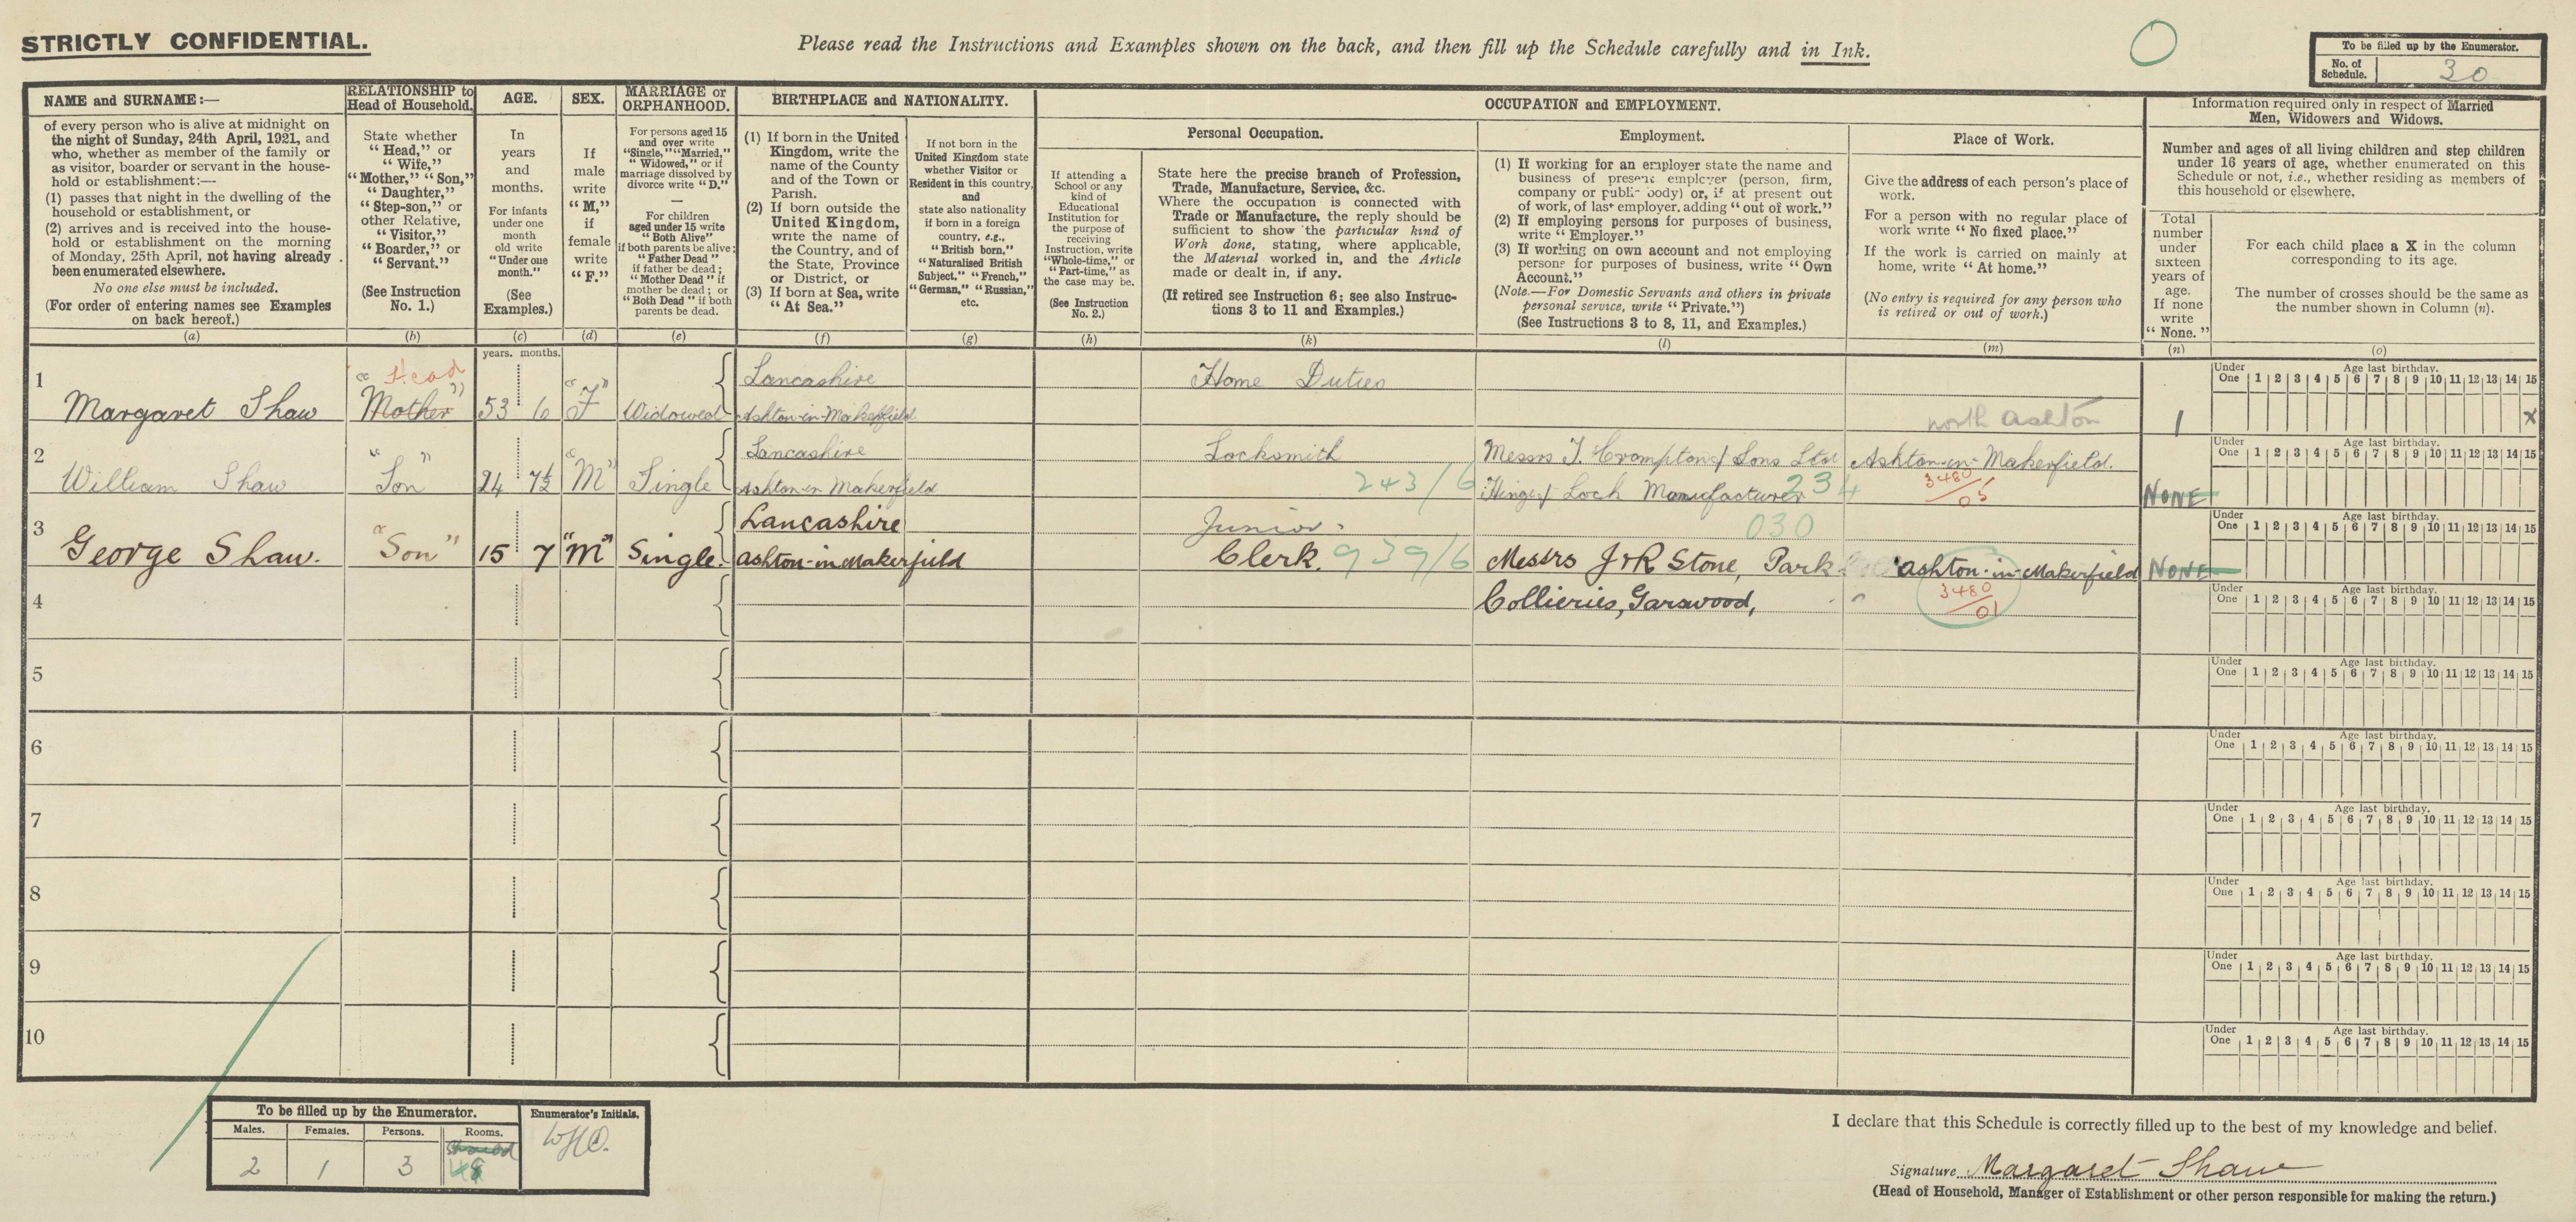 STRICTLY CONFIDENTIAL.
Please read the Instructions and Examples shown on the back, and then fill up the Schedule carefully and in Ink.
To be filled up by the Enumerator.
No. of Schedule. 30
NAME and SURNAME:—
of every person who is alive at midnight on
the night of Sunday, 24th April, 1921, and
who, whether as member of the family or
as visitor, boarder or servant in the house-
hold or establishment:—
(1) passes that night in the dwelling of the
household or establishment, or
(2) arrives and is received into the house-
hold or establishment on the morning
of Monday, 25th April, not having already
been enumerated elsewhere.
No one else must be included.
(For order of entering names see Examples
on back hereof.)
(a)
RELATIONSHIP to
Head of Household.
State whether
"Head," or
"Wife,"
"Mother," "Son,"
"Daughter,"
"Step-son," or
other Relative,
"Visitor,"
"Boarder," or
"Servant."
(See Instruction
No. 1.)
(b)
AGE.
In
years
and
months.
For infants
under one
month
old write
"Under one
month."
(See
Examples.)
(c)
SEX.
If
male
write
"M,"
if
female
write
"F."
(d)
MARRIAGE or
ORPHANHOOD.
For persons aged 15
and over write
"Single," "Married,"
"Widowed," or if
marriage dissolved by
divorce write "D."
—
For children
aged under 15 write
"Both Alive"
if both parents be alive;
"Father Dead"
if father be dead;
"Mother Dead" if
mother be dead; or
"Both Dead" if both
parents be dead.
(e)
BIRTHPLACE and NATIONALITY.
(1) If born in the United
Kingdom, write the
name of the County
and of the Town or
Parish.
(2) If born outside the
United Kingdom,
write the name of
the Country, and of
the State, Province
or District, or
(3) If born at Sea, write
"At Sea."
(f)
If not born in the
United Kingdom state
whether Visitor or
Resident in this country,
and
state also nationality
if born in a foreign
country, e.g.,
"British born,"
"Naturalised British
Subject," "French,"
"German," "Russian,"
etc.
(g)
OCCUPATION and EMPLOYMENT.
Personal Occupation.
If attending a
School or any
kind of
Educational
Institution for
the purpose of
receiving
Instruction, write
"Whole-time," or
"Part-time," as
the case may be.
(See Instruction
No. 2.)
(h)
State here the precise branch of Profession,
Trade, Manufacture, Service, &c.
Where the occupation is connected with
Trade or Manufacture, the reply should be
sufficient to show the particular kind of
Work done, stating, where applicable,
the Material worked in, and the Article
made or dealt in, if any.
(If retired see Instruction 6; see also Instruc-
tions 3 to 11 and Examples.)
(k)
Employment.
(1) If working for an employer state the name and
business of present employer (person, firm,
company or public body) or, if at present out
of work, of last employer, adding "out of work."
(2) If employing persons for purposes of business,
write "Employer."
(3) If working on own account and not employing
persons for purposes of business, write "Own
Account."
(Note.—For Domestic Servants and others in private
personal service, write "Private.")
(See Instructions 3 to 8, 11, and Examples.)
(l)
Place of Work.
Give the address of each person's place of
work.
For a person with no regular place of
work write "No fixed place."
If the work is carried on mainly at
home, write "At home."
(No entry is required for any person who
is retired or out of work.)
(m)
Information required only in respect of Married
Men, Widowers and Widows.
Number and ages of all living children and step children
under 16 years of age, whether enumerated on this
Schedule or not, i.e., whether residing as members of
this household or elsewhere.
Total
number
under
sixteen
years of
age.
If none
write
"None."
(n)
For each child place a X in the column
corresponding to its age.
The number of crosses should be the same as
the number shown in Column (n).
(o)
years. months.
1
Margaret Shaw
"Head
Mother"
53 6
"F"
Widowed
Lancashire
Ashton-in-Makerfield
Home Duties
north ashton
1
Under One Age last birthday.
1 2 3 4 5 6 7 8 9 10 11 12 13 14 15
X
2
William Shaw
"Son"
24 7½
"M"
Single
Lancashire
Ashton in Makerfield
Locksmith
243/6
Messrs T. Crompton & Sons Ltd
Hinge & Lock Manufacturer
234
Ashton-in-Makerfield.
3480/05
NONE
Under One Age last birthday.
1 2 3 4 5 6 7 8 9 10 11 12 13 14 15
3
George Shaw.
"Son"
15 7
"M"
Single.
Lancashire
Ashton-in-Makerfield
Junior
Clerk.
939/6
030
Messrs J & R Stone, Park
Collieries, Garswood,
Ashton-in-Makerfield
3480/01
NONE
Under One Age last birthday.
1 2 3 4 5 6 7 8 9 10 11 12 13 14 15
4
Under One Age last birthday.
1 2 3 4 5 6 7 8 9 10 11 12 13 14 15
5
Under One Age last birthday.
1 2 3 4 5 6 7 8 9 10 11 12 13 14 15
6
Under One Age last birthday.
1 2 3 4 5 6 7 8 9 10 11 12 13 14 15
7
Under One Age last birthday.
1 2 3 4 5 6 7 8 9 10 11 12 13 14 15
8
Under One Age last birthday.
1 2 3 4 5 6 7 8 9 10 11 12 13 14 15
9
Under One Age last birthday.
1 2 3 4 5 6 7 8 9 10 11 12 13 14 15
10
Under One Age last birthday.
1 2 3 4 5 6 7 8 9 10 11 12 13 14 15
To be filled up by the Enumerator.
Males. Females. Persons. Rooms.
2 1 3
Enumerator's Initials.
I declare that this Schedule is correctly filled up to the best of my knowledge and belief.
Signature Margaret Shaw
(Head of Household, Manager of Establishment or other person responsible for making the return.)